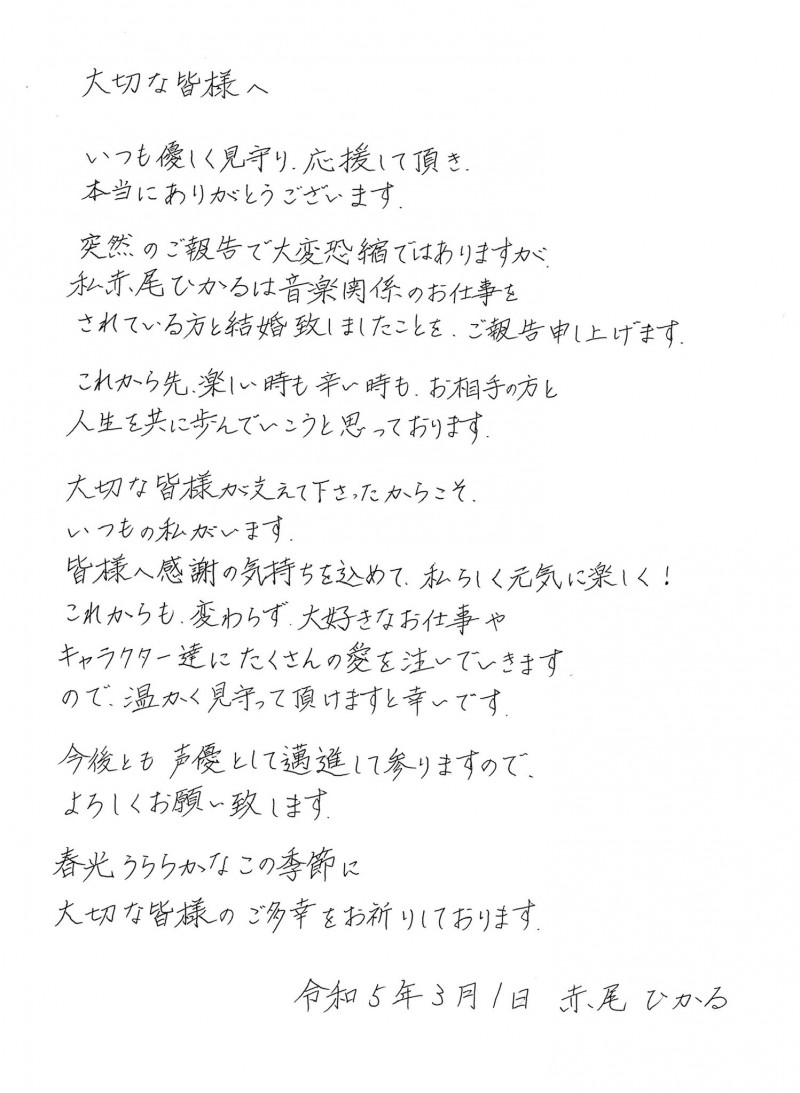 大切な皆様へ
いつも優しく見守り、応援して頂き、
本当にありがとうございます。
突然のご報告で大変恐縮ではありますが、
私赤尾ひかるは音楽関係のお仕事を
されている方と結婚致しましたことを、ご報告申し上げます。
これから先、楽しい時も辛い時も、お相手の方と
人生を共に歩んでいこうと思っております。
大切な皆様が支えて下さったからこそ、
いつもの私がいます。
皆様へ感謝の気持ちを込めて、私らしく元気に楽しく！
これからも、変わらず、大好きなお仕事や
キャラクター達にたくさんの愛を注いでいきます
ので、温かく見守って頂けますと幸いです。
今後とも声優として邁進して参りますので、
よろしくお願い致します。
春光うららかなこの季節に
大切な皆様のご多幸をお祈りしております。
令和5年3月1日 赤尾 ひかる